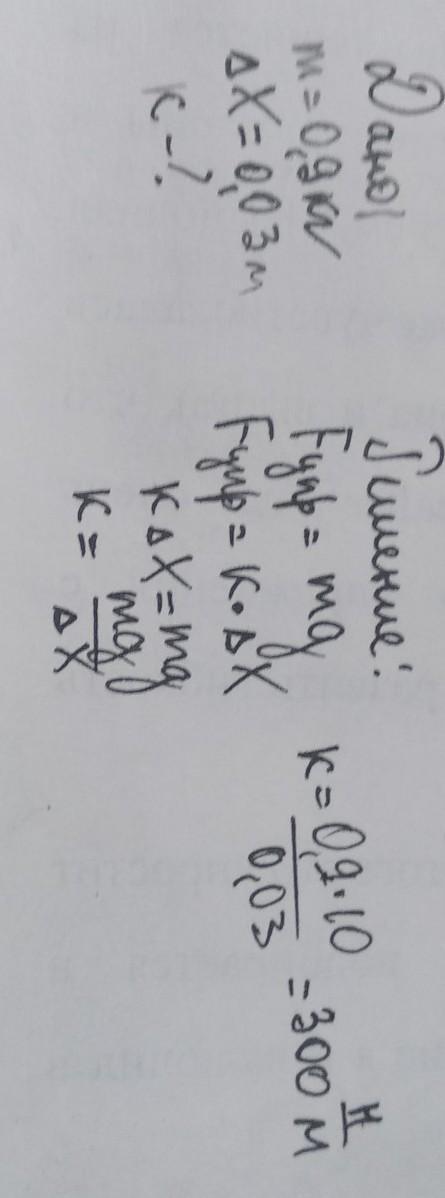 Дано:
m = 0,9 кг
ΔX = 0,03 м
К - ?
Решение:
Fупр = mg
Fупр = К · ΔX
КΔX = mg
К = mg/ΔX
К = 0,9·10/0,03 = 300 Н/м